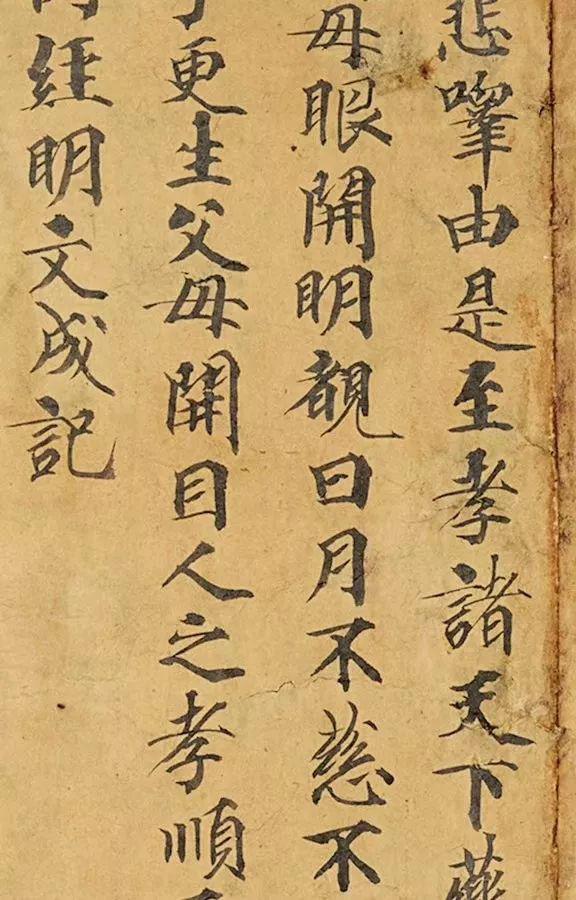 悲嗥由是至孝諸天下藥
母眼開明覩日月不慈不
更生父母開目人之孝順
經明文成記